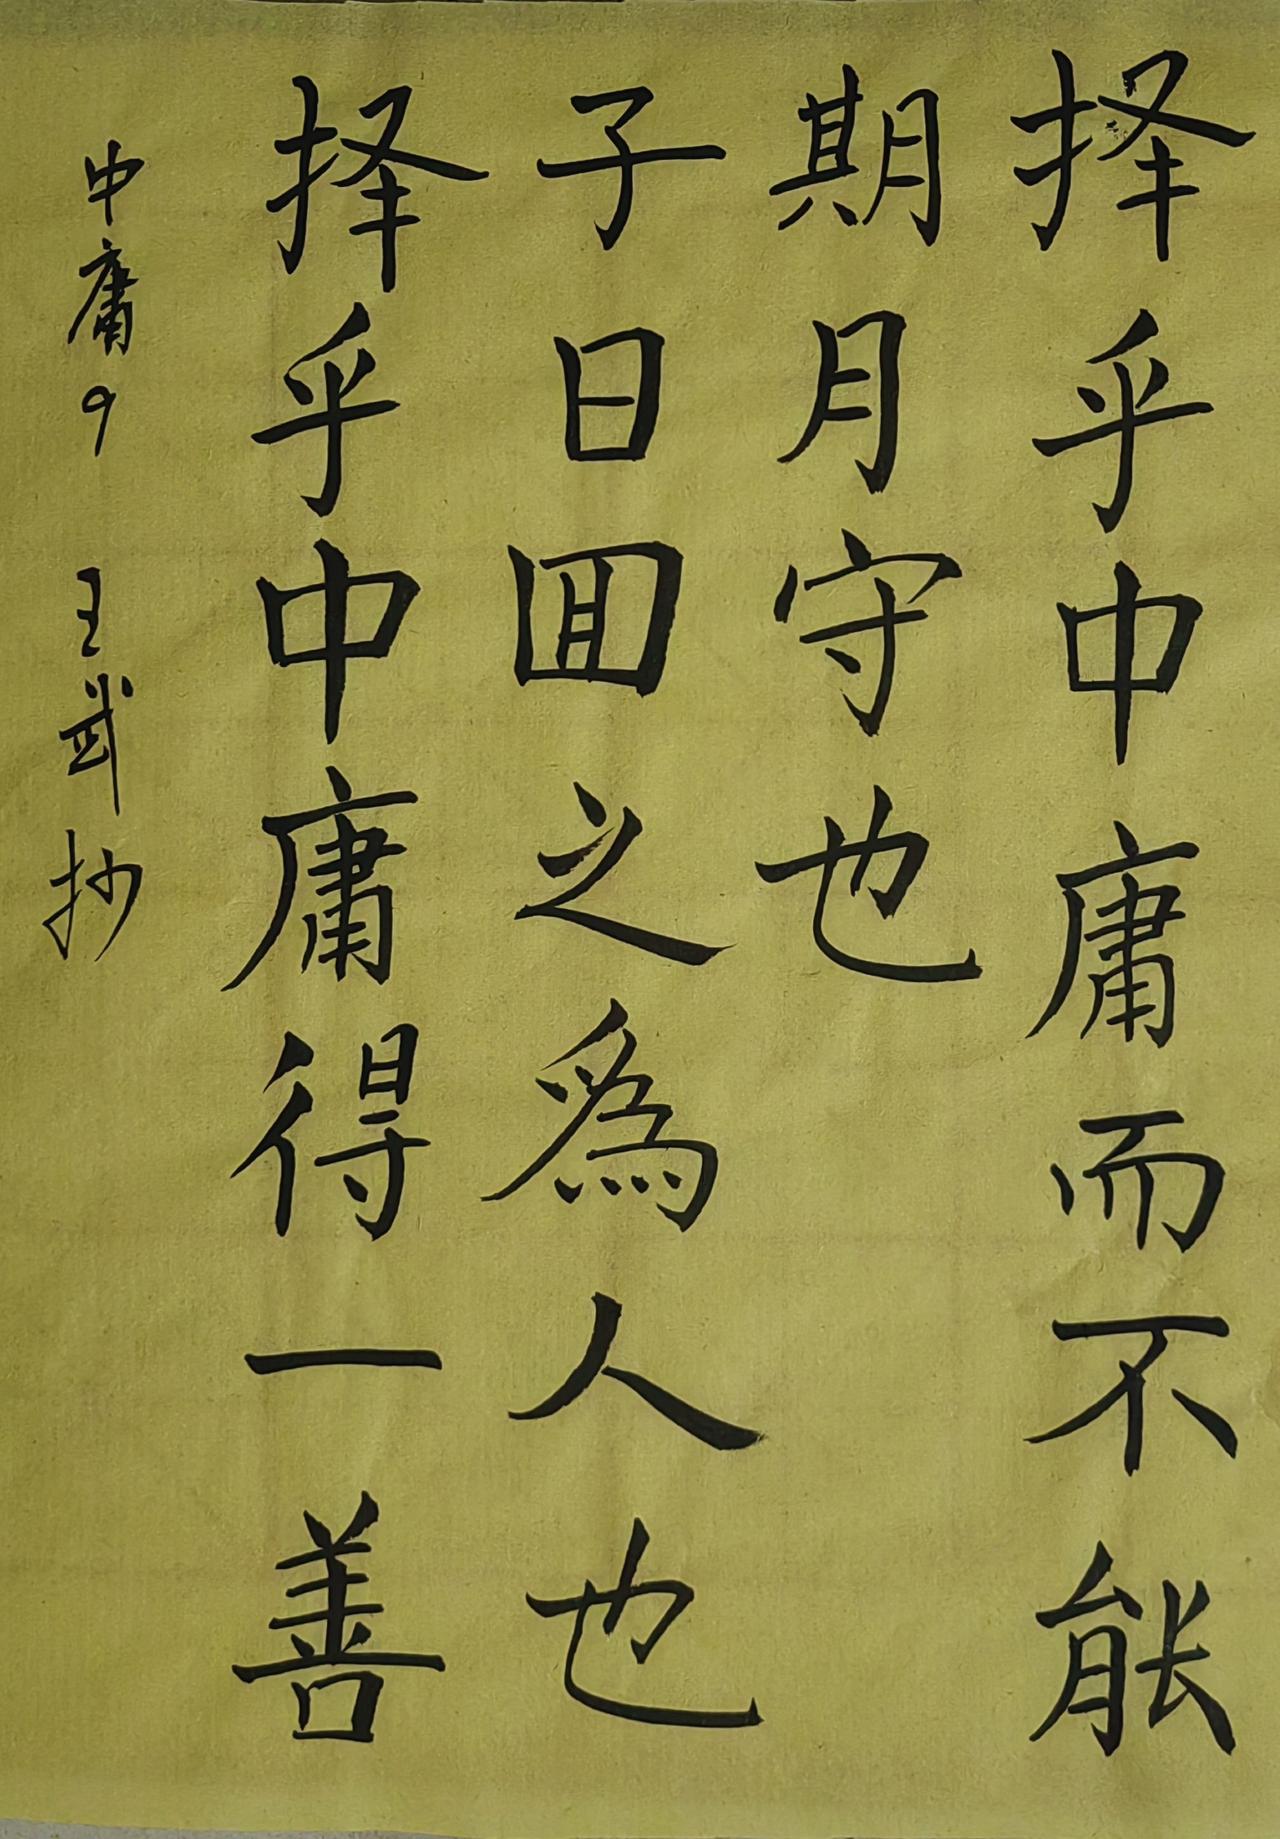 择乎中庸而不能
期月守也
子曰囬之爲人也
择乎中庸得一善
中庸9 王武抄